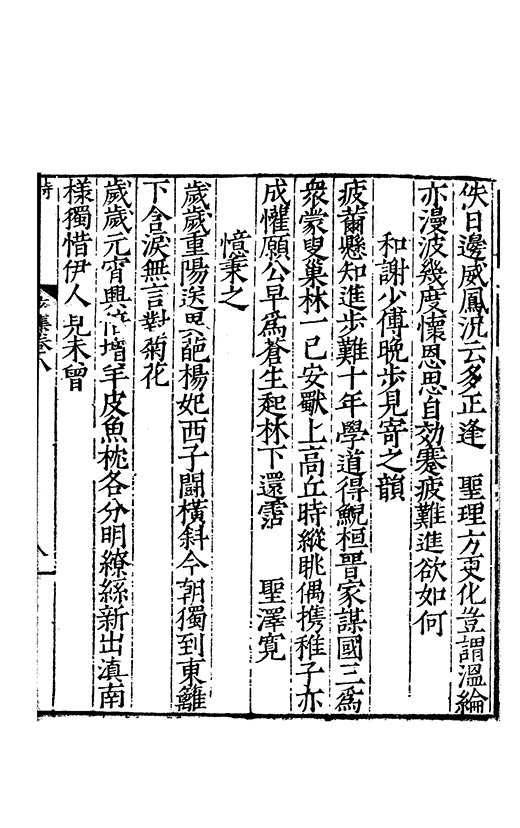 佚日邊威鳳況云多正逢　聖理方更化豈謂溫綸
亦漫波幾度懷恩思自効蹇疲難進欲如何
和謝少傅晚步見寄之韻
疲薾懸知進步難十年學道得鯢桓晋家謀國三爲
衆蒙叟巢林一已安獸上高丘時縱眺偶携稚子亦
成懽願公早爲蒼生起林下還霑　聖澤寬
憶秉之
歲歲重陽送 葩楊妃西子鬬橫斜今朝獨到東籬
下含淚無言對菊花
歲歲元宵興 增羊皮魚枕各分明繚絲新出滇南
樣獨惜伊人見未曾
詩
集卷八
八